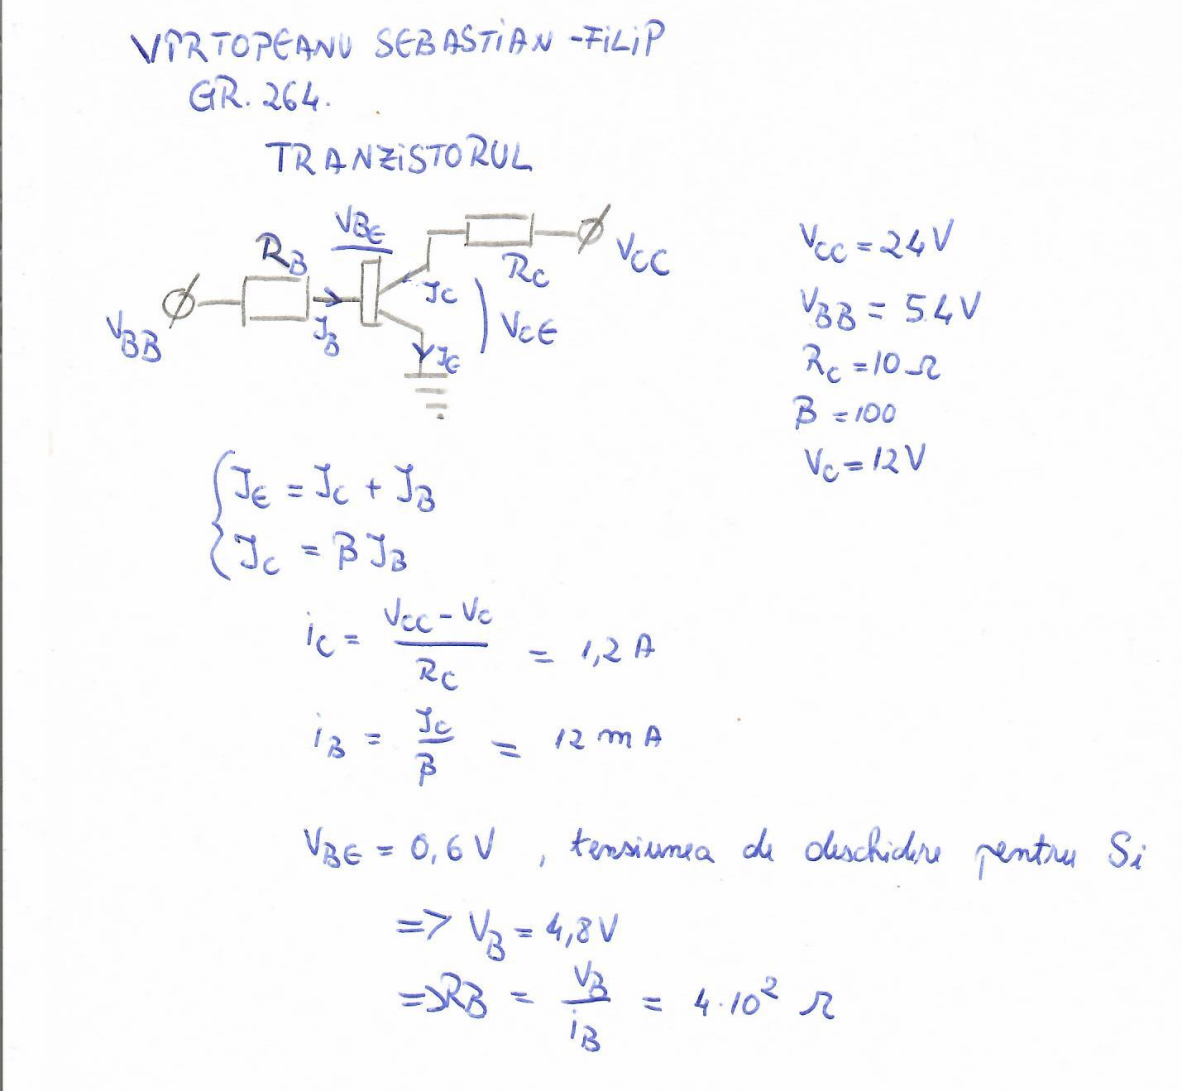 VÎRTOPEANU SEBASTIAN-FILIP
GR. 264.
TRANZISTORUL
VBE
RB
RC
VCC
JC
VCE
VBB
JB
JE
VCC = 24V
VBB = 5.4V
RC = 10 Ω
β = 100
VC = 12V
JE = JC + JB
JC = βJB
iC = (VCC - VC) / RC = 1,2 A
iB = JC / β = 12 mA
VBE = 0,6 V , tensiunea de deschidere pentru Si
=> VB = 4,8V
=> RB = VB / iB = 4·10² Ω